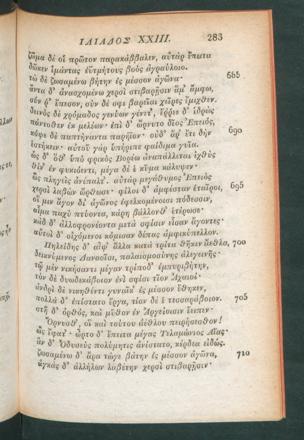 ΙΛΙΑΔΟΣ XXIII. 283
ζῶμα δέ οἱ πρῶτον παρακάββαλεν, αὐτὰρ ἔπειτα
δῶκεν ἱμάντας ἐϋτμήτους βοὸς ἀγραύλοιο.
τὼ δὲ ζωσαμένω βήτην ἐς μέσσον ἀγῶνα· 685
ἄντα δ' ἀνασχομένω χερσὶ στιβαρῇσιν ἅμ' ἄμφω,
σύν ῥ' ἔπεσον, σὺν δέ σφι βαρεῖαι χεῖρες ἔμιχθεν.
δεινὸς δὲ χρόμαδος γενύων γένετ', ἔῤῥεε δ' ἱδρὼς
πάντοθεν ἐκ μελέων· ἐπὶ δ' ὤρνυτο δῖος Ἐπειός,
κόψε δὲ παπτήναντα παρήϊον· οὐδ' ἄρ' ἔτι δὴν 690
ἑστήκειν· αὐτοῦ γὰρ ὑπήριπε φαίδιμα γυῖα.
ὡς δ' ὅθ' ὑπὸ φρικὸς Βορέω ἀναπάλλεται ἰχθὺς
θῖν' ἐν φυκιόεντι, μέγα δέ ἑ κῦμα κάλυψεν·
ὣς πληγεὶς ἀνέπαλτ'. αὐτὰρ μεγάθυμος Ἐπειὸς
χερσὶ λαβὼν ὤρθωσε· φίλοι δ' ἀμφέσταν ἑταῖροι, 695
οἵ μιν ἄγον δι' ἀγῶνος ἐφελκομένοισι πόδεσσιν,
αἷμα παχὺ πτύοντα, κάρη βάλλονθ' ἑτέρωσε·
κὰδ δ' ἀλλοφρονέοντα μετὰ σφίσιν εἷσαν ἄγοντες·
αὐτοὶ δ' οἰχόμενοι κόμισαν δέπας ἀμφικύπελλον.
Πηλείδης δ' αἶψ' ἄλλα κατὰ τρίτα θῆκεν ἄεθλα, 700
δεικνύμενος Δαναοῖσι, παλαισμοσύνης ἀλεγεινῆς·
τῷ μὲν νικήσαντι μέγαν τρίποδ' ἐμπυριβήτην,
τὸν δὲ δυωδεκάβοιον ἐνὶ σφίσι τῖον Ἀχαιοί·
ἀνδρὶ δὲ νικηθέντι γυναῖκ' ἐς μέσσον ἔθηκεν,
πολλὰ δ' ἐπίστατο ἔργα, τίον δέ ἑ τεσσαράβοιον. 705
στῆ δ' ὀρθός, καὶ μῦθον ἐν Ἀργείοισιν ἔειπεν·
Ὄρνυσθ', οἳ καὶ τούτου ἀέθλου πειρήσεσθον!
ὣς ἔφατ'· ὦρτο δ' ἔπειτα μέγας Τελαμώνιος Αἴας·
ἂν δ' Ὀδυσεὺς πολύμητις ἀνίστατο, κέρδεα εἰδώς.
ζωσαμένω δ' ἄρα τώγε βάτην ἐς μέσσον ἀγῶνα, 710
ἀγκὰς δ' ἀλλήλων λαβέτην χερσὶ στιβαρῇσιν·